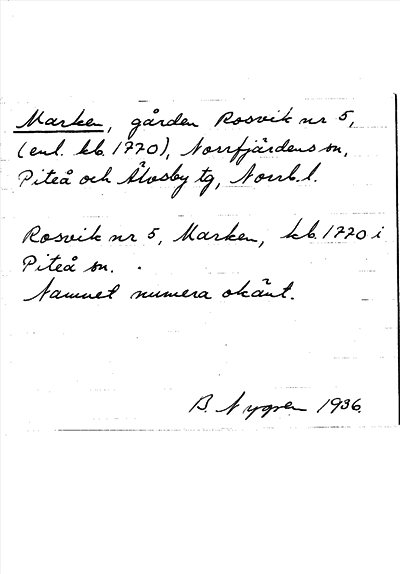 Marken, gården Rosvik nr 5,
(enl. kb. 1770), Norrfjärdens sn,
Piteå och Älvsby tg, Norrb. l.
Rosvik nr 5, Marken, kb. 1770 i
Piteå sn.
Namnet numera okänt.
B. Nygren 1936.